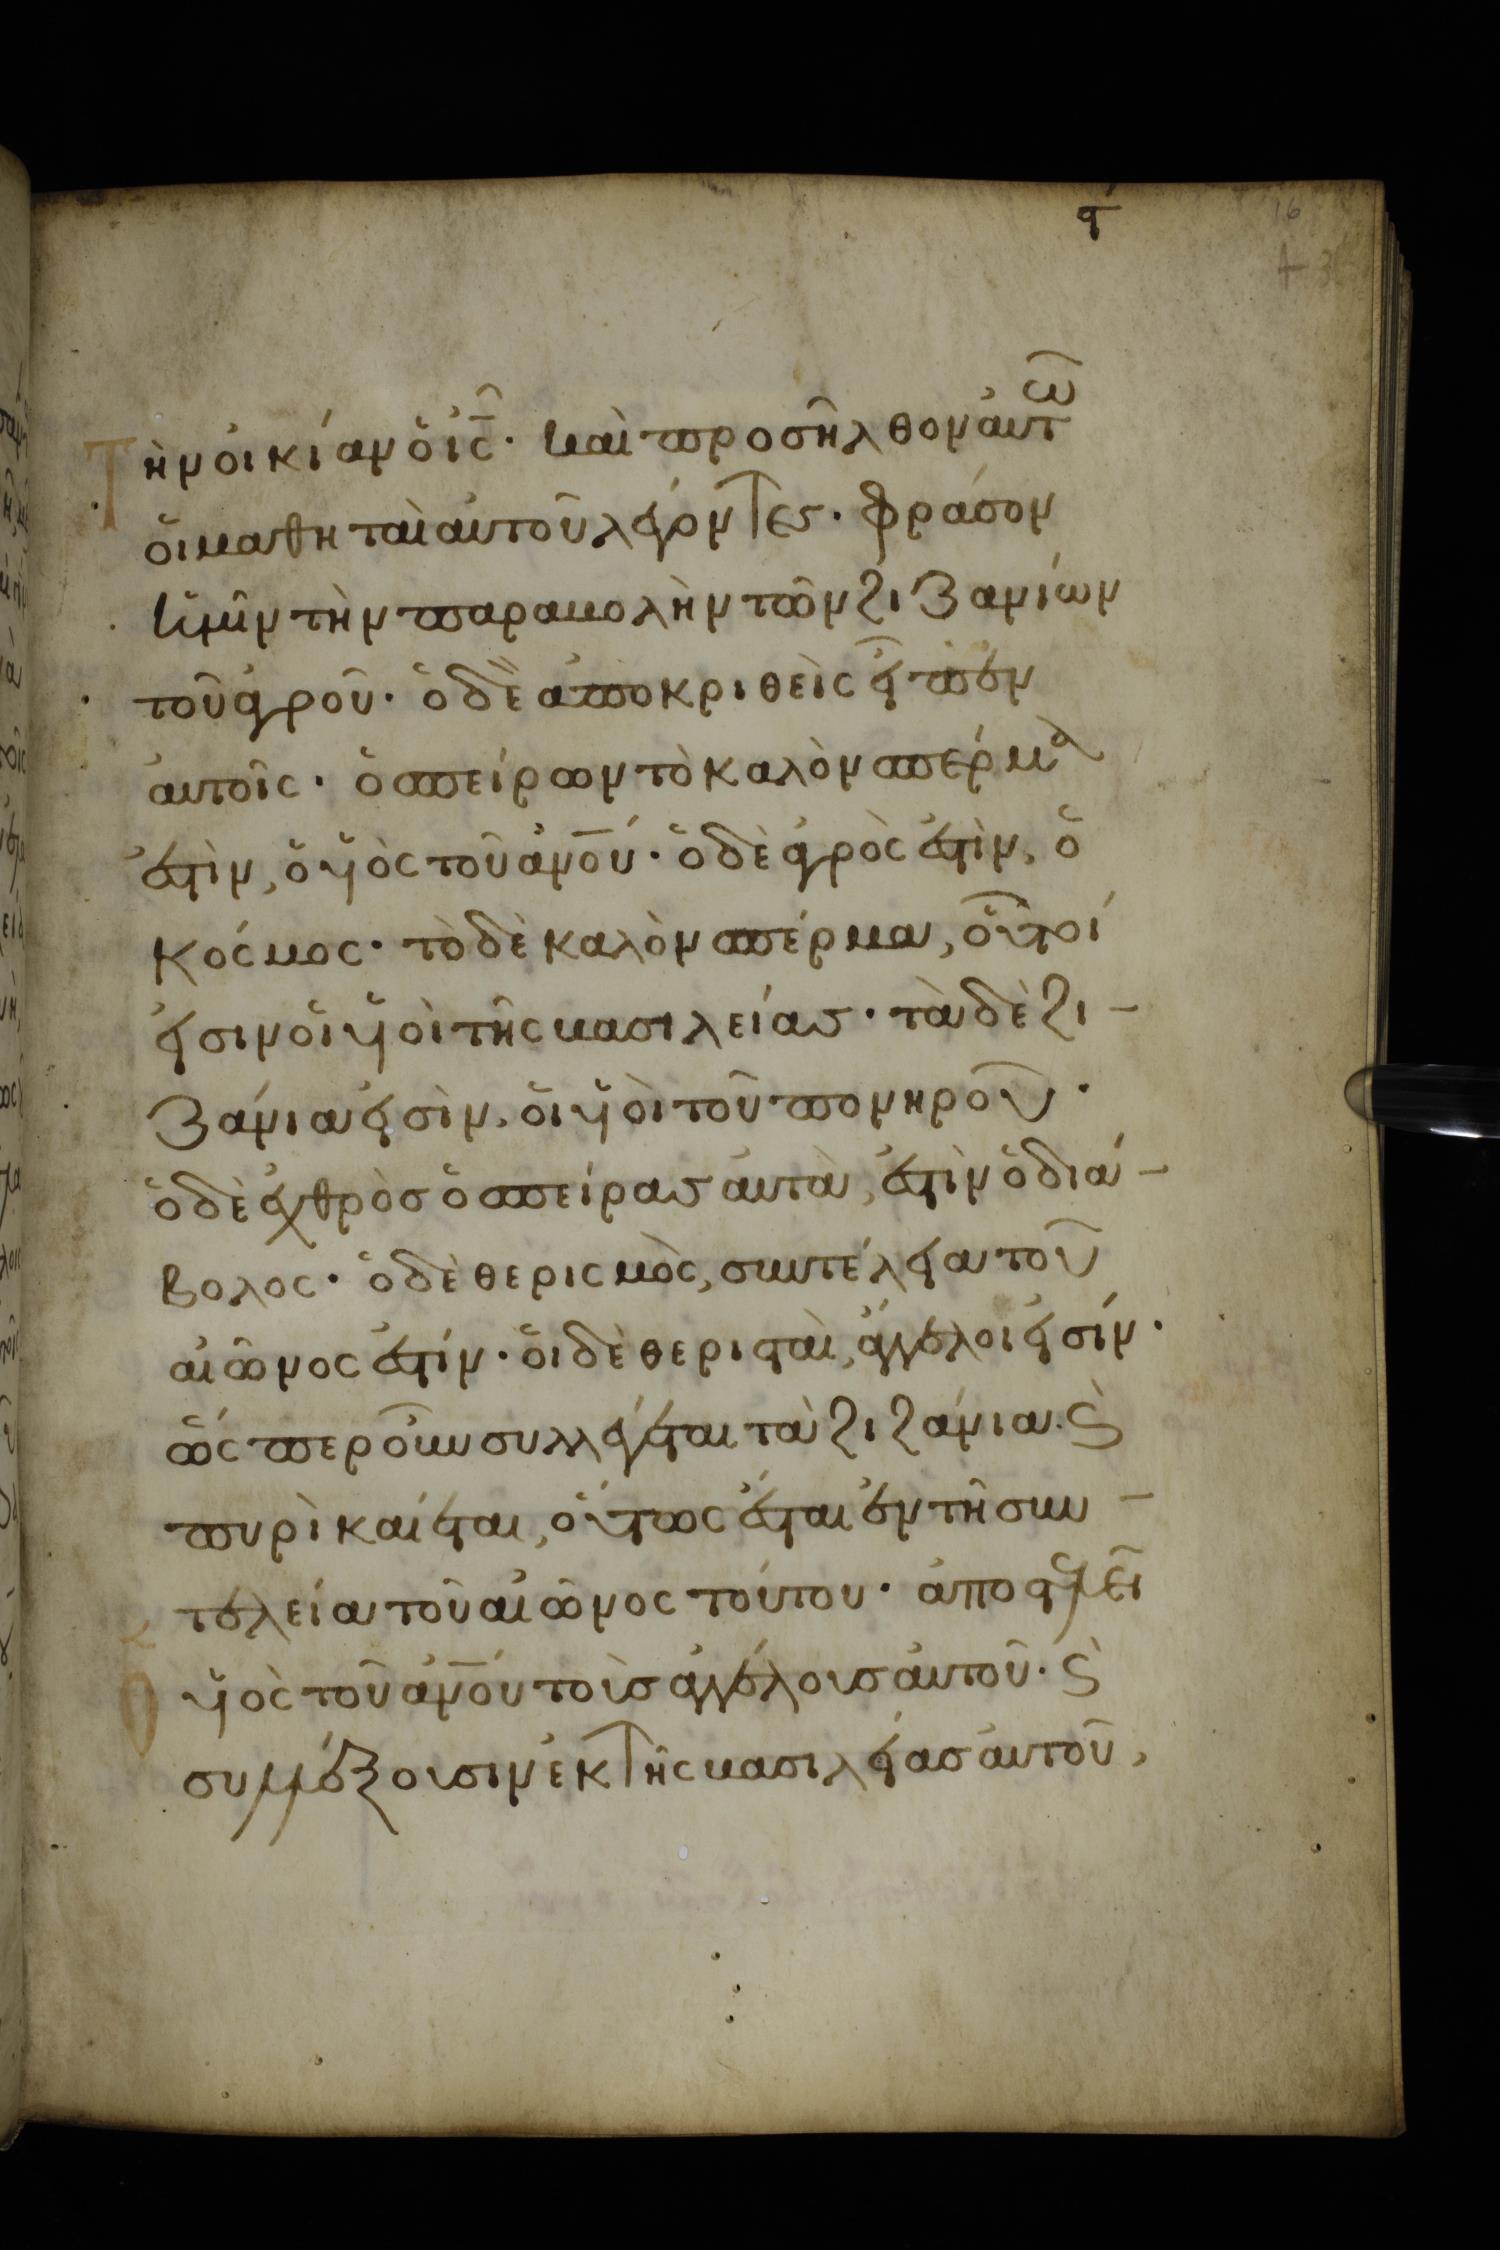 ϟ 16
τὴν οἰκίαν ὁ ἰς̅. καὶ προσῆλθον αὐτῶ
οἱ μαθηταὶ αὐτοῦ λέγοντες. φράσον
ἡμῖν τὴν παραβολὴν τῶν ζιζανίων
τοῦ ἀγροῦ. ὁ δὲ ἀποκριθεὶς εἶπεν
αὐτοῖς. ὁ σπείρων τὸ καλὸν σπέρμα
ἐστὶν, ὁ υἱὸς τοῦ ἀν̅ου. ὁ δὲ ἀγρὸς ἐστὶν, ὁ
κόσμος. τὸ δὲ καλὸν σπέρμα, οὗτοί
εἰσιν οἱ υἱοὶ τῆς βασιλείας. τὰ δὲ ζι-
ζάνια εἰσὶν, οἱ υἱοὶ τοῦ πονηροῦ.
ὁ δὲ ἐχθρὸς ὁ σπείρας αὐτὰ, ἐστὶν ὁ διά-
βολος. ὁ δὲ θερισμὸς, συντέλεια τοῦ
αἰῶνος ἐστίν. οἱ δὲ θερισταὶ, ἄγγελοι εἰσίν.
ὥσπερ οὖν συλλέγεται τὰ ζιζάνια. ϗ
πυρὶ καίεται, οὕτως ἔσται ἐν τῆ συν-
τελεία τοῦ αἰῶνος τούτου. ἀποστελεῖ
ὁ υἱὸς τοῦ ἀν̅ου τοὺς ἀγγέλους αὐτοῦ. ϗ
συλλέξουσιν ἐκ τῆς βασιλείας αὐτοῦ,